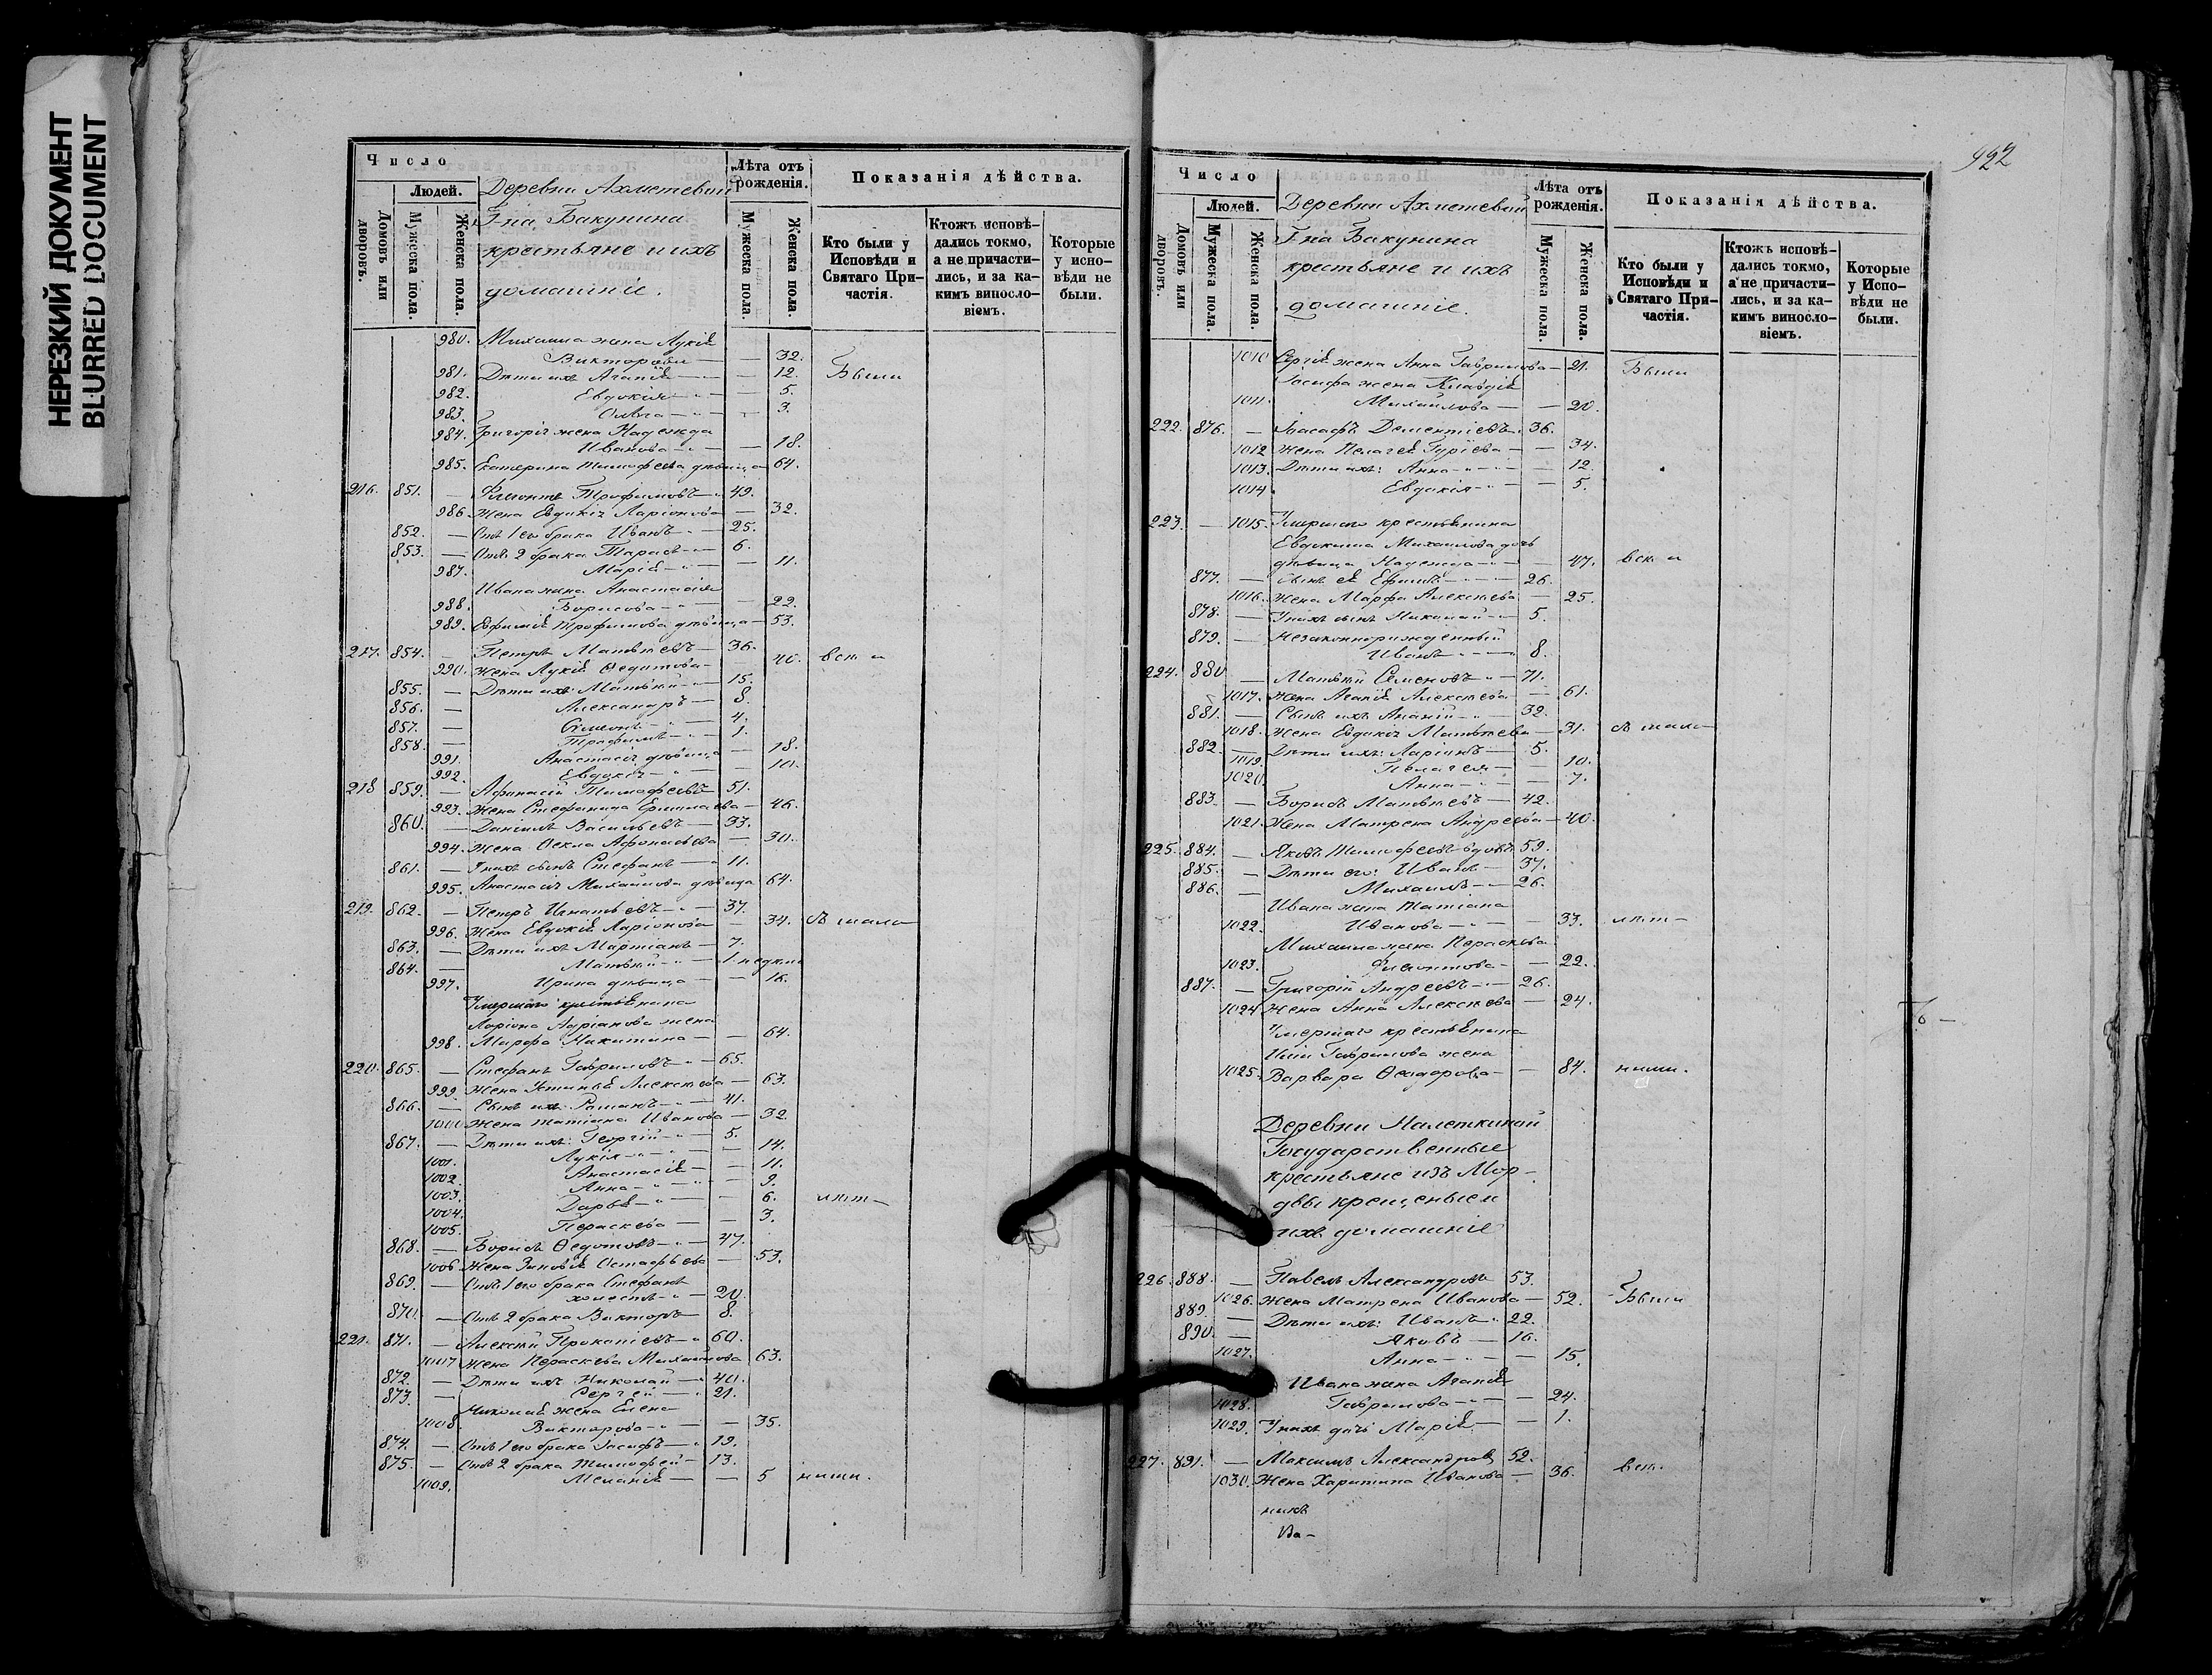 НЕРЕЗКИЙ ДОКУМЕНТ
BLURRED DOCUMENT
Число
Людей.
Домовъ или дворовъ.
Мужеска пола.
Женска пола.
Деревни Ахметевой
Г-на Бакунина
крестьяне и ихъ
домашніе.
Лѣта отъ рожденія.
Мужеска пола.
Женска пола.
Показанія дѣйства.
Кто были у Исповѣди и Святаго Причастія.
Ктожъ исповѣдались токмо, а не причастились, и за какимъ винословіемъ.
Которые у исповѣди не были.
980. Михаила жена Лукія
Викторова — — 32.
981. Дѣти ихъ Агапія — — 12. Были
982. Евдокія — — 5.
983. Ольга — — 3.
984. Григорія жена Надежда
Иванова — — 18.
985. Екатерина Тимофеева дѣвица — 64.
216. 851. — Филиппъ Трофимовъ — 49.
986. Жена Евдокія Ларіонова — 32.
852. — Отъ 1 его брака Иванъ — 25.
853. — Отъ 2 брака Тарасъ — 6.
987. Марія — — 11.
Ивана жена Анастасія
988. Борисова — — 22.
989. Евфимія Трофимова дѣвица — 53.
217. 854. — Петръ Матвѣевъ — 36.
990. Жена Лукія Ѳедотова — 40. всѣ и
855. — Дѣти ихъ: Матвѣй — 15.
856. — Александръ — 8.
857. — Симеонъ — 4.
858. — Трофимъ — 1.
991. Анастасія дѣвица — 18.
992. Евдокія — — 10.
218 859. — Афанасій Тимофеевъ 51.
993. Жена Стефанида Ермолаева — 46.
860. — Даніилъ Васильевъ — 33.
994. Жена Ѳекла Афонасьева — 30.
861. — У нихъ сынъ Стефанъ — 11.
995. Анастасія Михайлова дѣвица 64.
219. 862. — Петръ Игнатьевъ — 37.
996. Жена Евдокія Ларіонова — 34. съ мало
863. — Дѣти ихъ Мартіанъ — 7.
864. — Матвѣй — 1 недели
997. Ирина дѣвица — 16.
Умершаго крестьянина
Ларіона Адріанова жена
998. Марфа Никитина — — 64.
220. 865. — Стефанъ Гавриловъ — 65.
999. Жена Устинья Алексѣева — 63.
866. — Сынъ ихъ Романъ — 41.
1000 Жена Татіана Иванова — 32.
867. — Дѣти ихъ: Георгій — 5.
1001. Лукія — — 14.
1002. Анастасія — — 11.
1003. Анна — — 9.
1004. Дарья — — 6. лѣт—
1005. Параскева — — 3.
868. — Борисъ Ѳедотовъ — 47.
1006 Жена Зиновія Остафьева — 53.
869. — Отъ 1 его брака Стефанъ
холостъ — 20.
870. — Отъ 2 брака Викторъ — 8.
221. 871. — Алексѣй Прокопіевъ — 60.
1007 Жена Параскева Михайлова 63.
872. — Дѣти ихъ Николай — 40.
873. — Сергей — 21.
Николая жена Елена
1008. Викторова — — 35.
874. — Отъ 1 его брака Іосифъ — 19.
875. — Отъ 2 брака Тимофей — 13.
1009. Меланія — — 5 ними.
992
Число
Людей.
Домовъ или дворовъ.
Мужеска пола.
Женска пола.
Деревни Ахметевой
Г-на Бакунина
крестьяне и ихъ
домашніе.
Лѣта отъ рожденія.
Мужеска пола.
Женска пола.
Показанія дѣйства.
Кто были у Исповѣди и Святаго Причастія.
Ктожъ исповѣдались токмо, а не причастились, и за какимъ винословіемъ.
Которые у Исповѣди не были.
1010 Сергія жена Анна Гаврилова — 21. Были
Іосифа жена Клавдія
1011. Михайлова — — 20.
222. 876. — Іоасафъ Дементіевъ 36.
1012 Жена Пелагея Гуріева — 34.
1013. Дѣти ихъ: Анна — — 12.
1014. Евдокія — — 5.
223. — 1015. Умершаго крестьянина
Евдокима Михайлова дочь
дѣвица Надежда — — 47. всѣ и
877. — Сынъ ея Ефимъ — 26.
1016. Жена Марфа Алексѣева — 25.
878. — У нихъ сынъ Николай — 5.
879. — Незаконнорожденный
Иванъ — 8.
224. 880 — Матвѣй Семеновъ — 71.
1017. Жена Агапія Алексѣева — 61.
881. — Сынъ ихъ Ананій — 32.
1018. Жена Евдокія Матвѣева — 31. съ мало—
882. — Дѣти ихъ: Ларіонъ — 5.
1019. Пелагея — — 10.
1020. Анна — — 7.
883. — Борисъ Матвѣевъ — 42.
1021. Жена Матрена Андреева — 40.
225. 884. — Яковъ Тимофеевъ вдовъ 59.
885. — Дѣти его: Иванъ — 37.
886. — Михаилъ — 26.
Ивана жена Татіана
1022. Иванова — — 33. лѣт—
Михаила жена Параскева
1023. Филиппова — — 22.
887. — Григорій Андреевъ — 26.
1024 Жена Анна Алексѣева — 24.
Умершаго крестьянина
Иліи Гаврилова жена
1025. Варвара Ѳедорова — — 84. ними.
Деревни Налеткиной
Государственные
крестьяне изъ Мор-
двы крещеные и
ихъ домашніе
226. 888. — Павелъ Александровъ 53.
1026. Жена Матрена Иванова — 52. Были
889. — Дѣти ихъ: Иванъ — 22.
890. — Яковъ — 16.
1027. Анна — — 15.
Ивана жена Агапія
1028. Гаврилова — — 24.
1029. У нихъ дочь Марія — — 1.
227. 891. — Максимъ Александровъ 52.
1030. Жена Харитина Иванова — 36. всѣ.